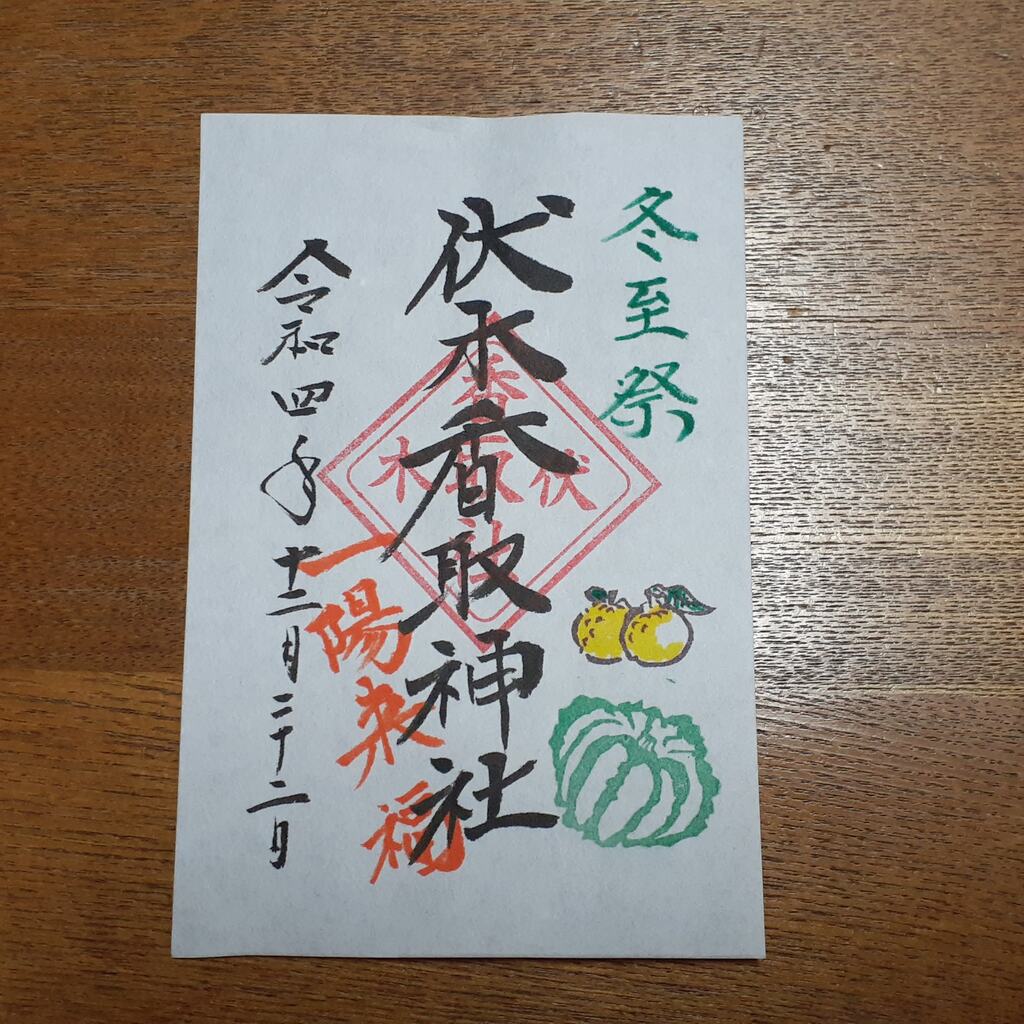 冬至祭
伏木香取神社
一陽来福
令和四年十二月二十二日
伏木
香取